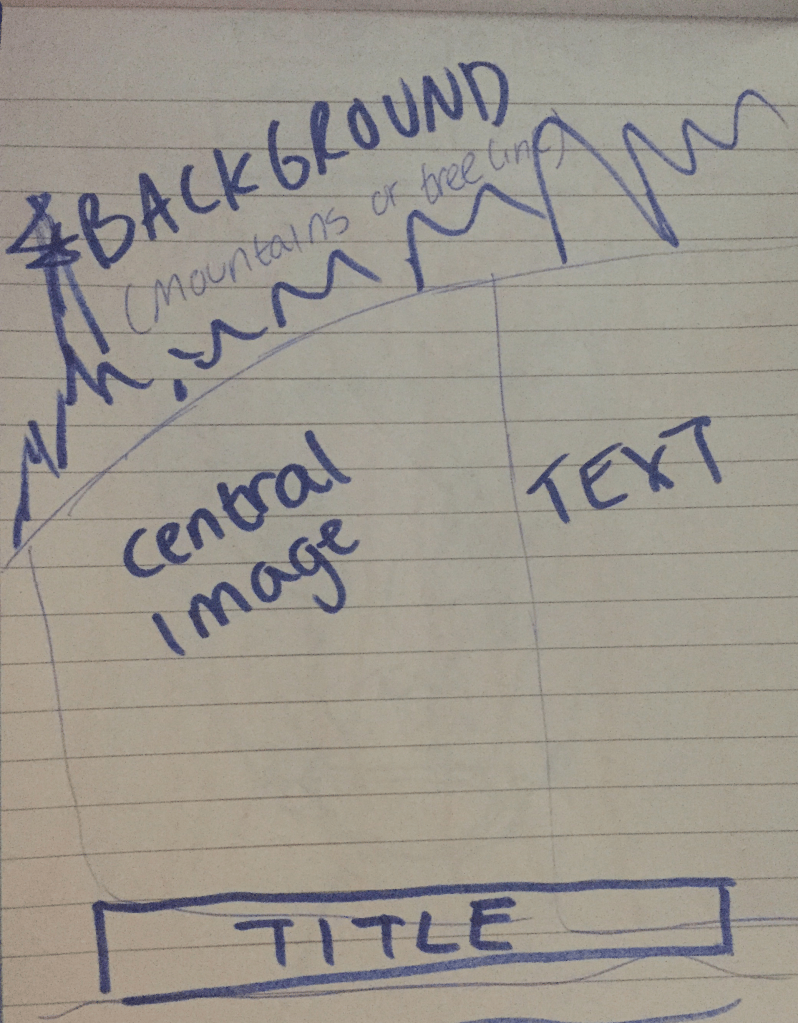 *BACKGROUND
(Mountains or tree line)
central
image
TEXT
TITLE